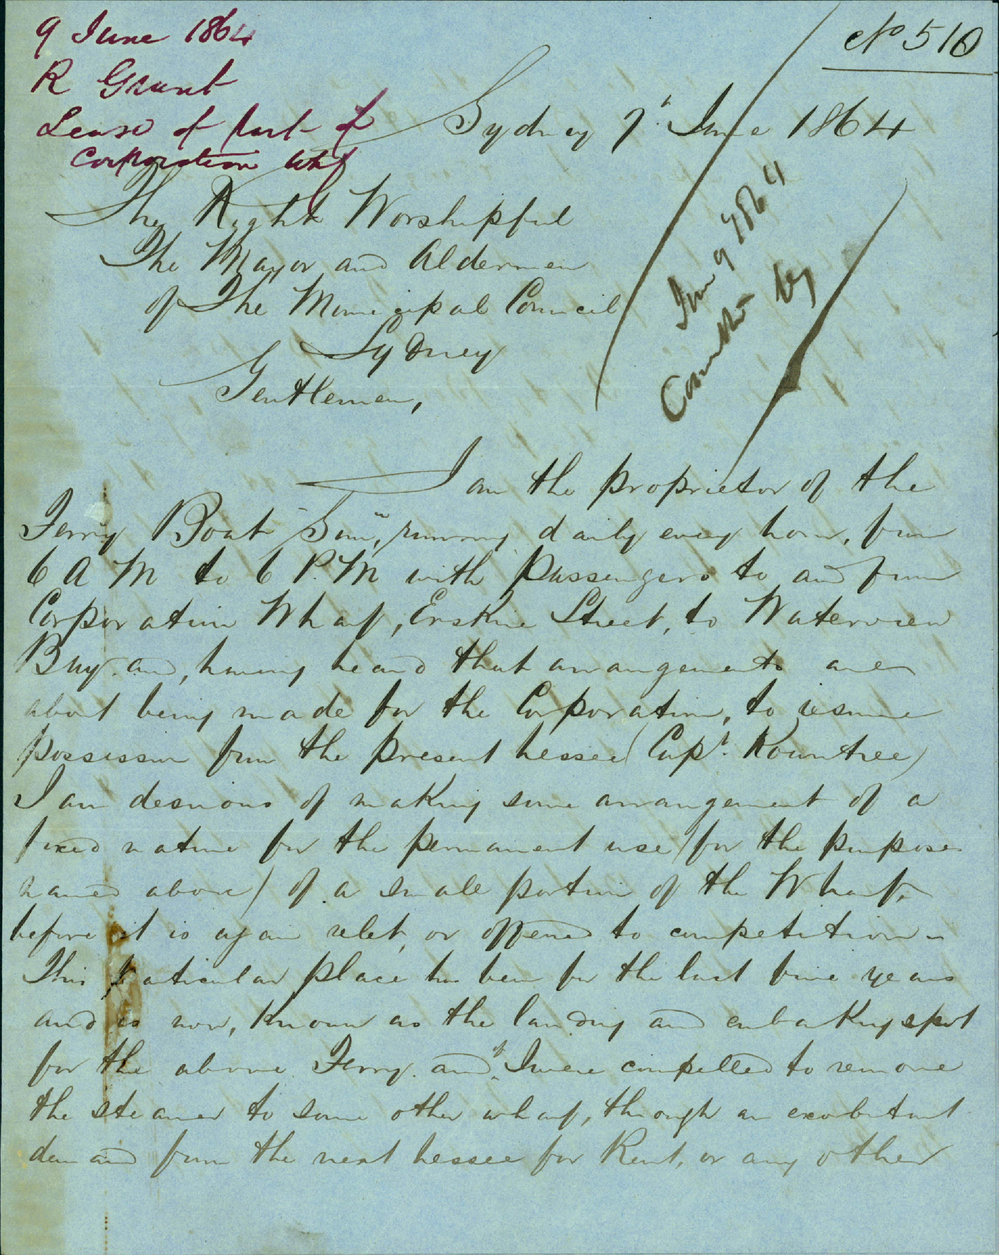 9 June 1864
R Grant
Lease of part of
Corporation Whf
No 510
Sydney 7th June 1864
June 9 1864
The Right Worshipful
The Mayor and Aldermen
of The Municipal Council
Sydney
Gentlemen,
I am the proprietor of the
Ferry Boat "Sun", running daily every hour, from
6 AM to 6 P.M with passengers to and from
Corporation Wharf, Erskine Street, to Waterview
Bay and, having heard that arrangements are
about being made for the Corporation, to resume
possession from the present Lessee (Capt. Rowntree)
I am desirous of making some arrangement of a
fixed nature for the permanent use (for the purpose
named above) of a small portion of the Wharf,
before it is again relet, or offered to competition.
This particular place has been for the last five years
and is now, known as the landing and embarking spot
for the above Ferry and if I were compelled to remove
the steamer to some other wharf, through an exorbitant
demand from the next Lessee for Rent, or any other